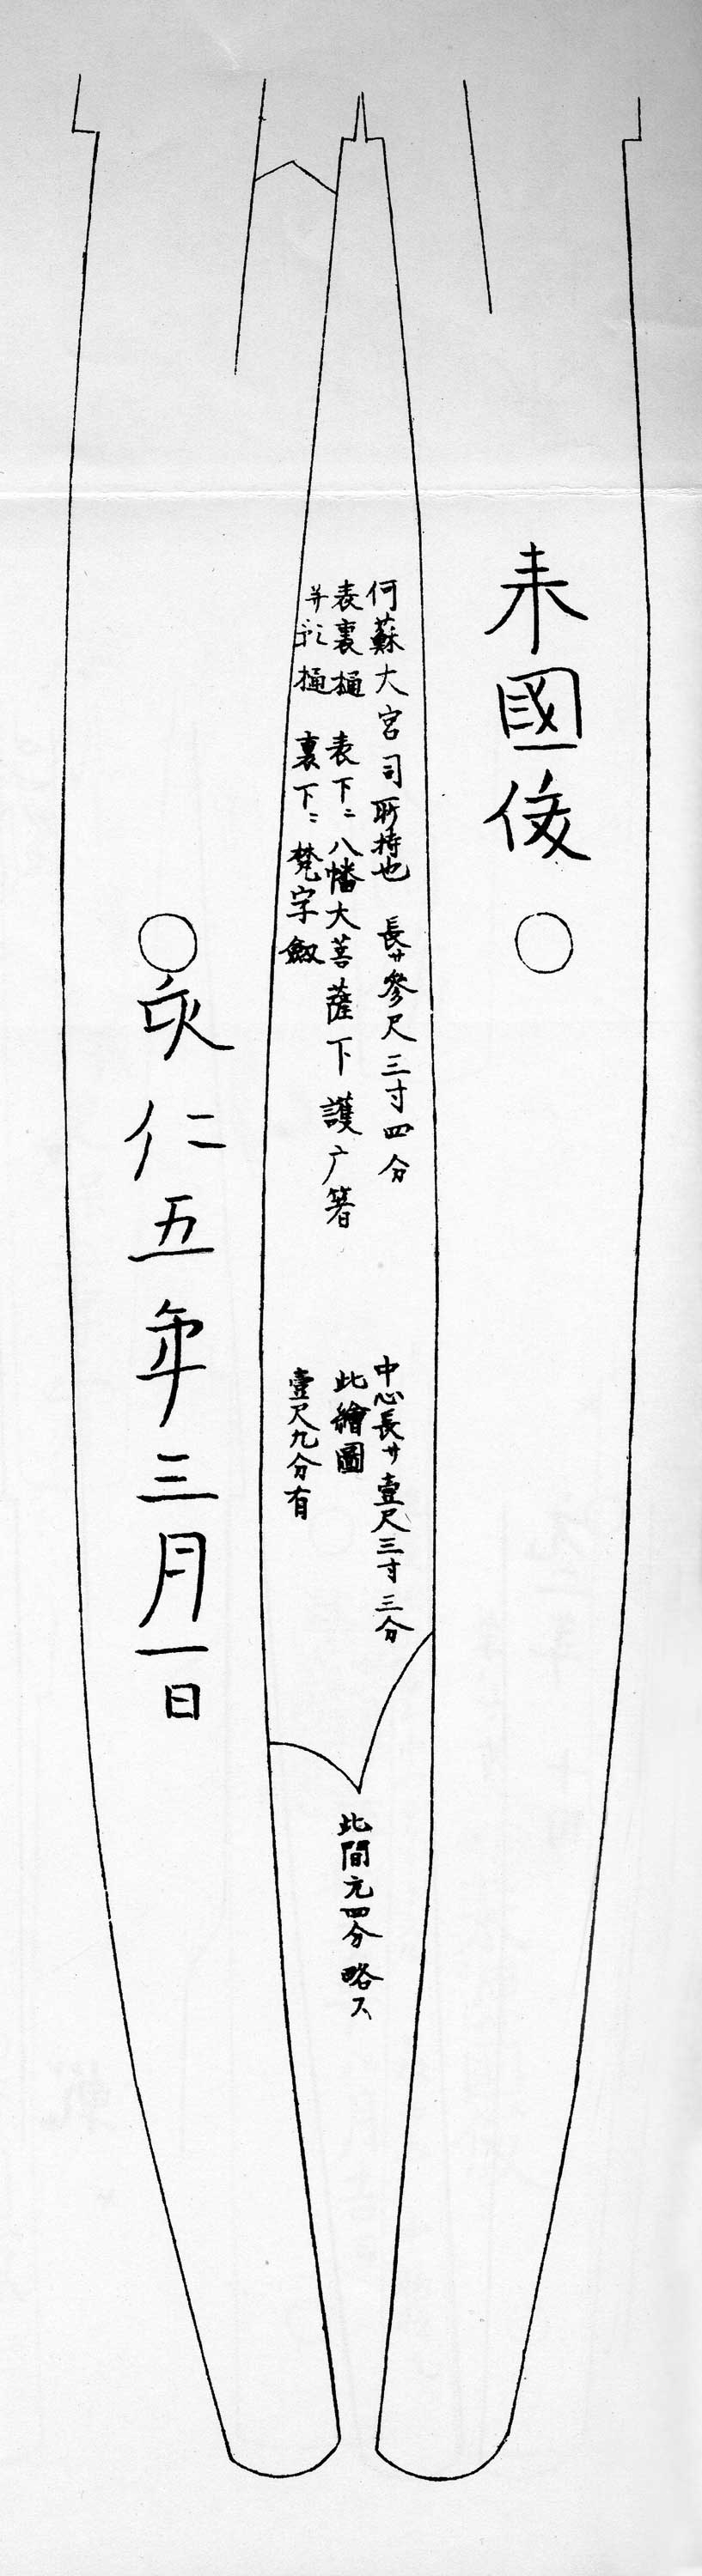 来國俊
何蘇大宮司所持也 長サ參尺三寸四分
表裏樋 表下ニ八幡大菩薩下護广箸
并 樋 裏下ニ梵字劔
中心長サ壹尺三寸三分
此繪圖
壹尺九分有
此間元四分略ス
永仁五年三月一日